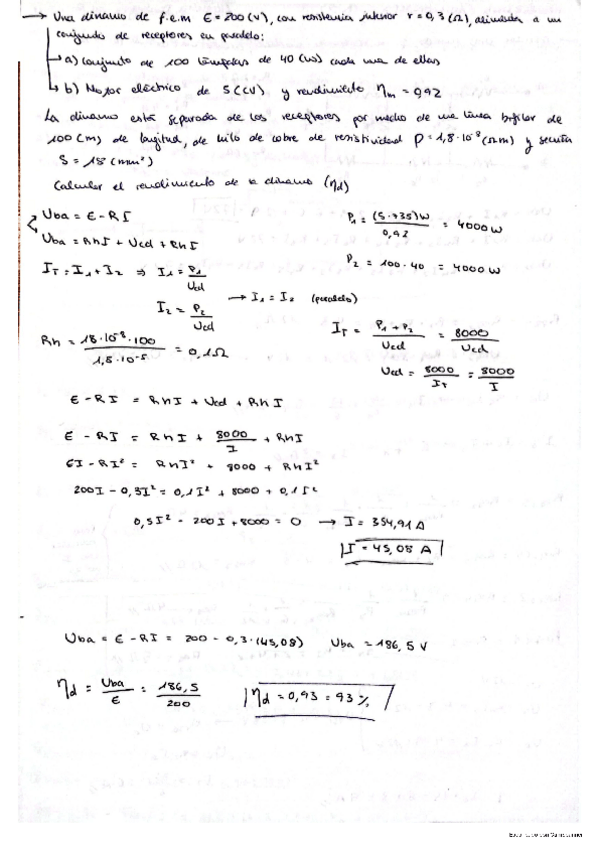 → Una dinamo de f.e.m ε = 200 (V), con resistencia interior r = 0,3 (Ω), alimenta a un
conjunto de receptores en paralelo:
↳ a) Conjunto de 100 lámparas de 40 (w) cada una de ellas
↳ b) Motor eléctrico de 5 (CV) y rendimiento ηm = 0,92
La dinamo está separada de los receptores por medio de una línea bifilar de
100 (m) de longitud, de hilo de cobre de resistividad ρ = 1,8·10⁻⁸ (Ω.m) y sección
S = 18 (mm²)
Calcular el rendimiento de la dinamo (ηd)
Uba = ε - RI
Uba = RhI + Ucd + RhI
P₁ = (5·735)W / 0,92 = 4000 W
P₂ = 100·40 = 4000 W
IT = I₁ + I₂ ⇒ I₁ = P₁ / Ucd
I₂ = P₂ / Ucd → I₁ = I₂ (paralelo)
IT = P₁ + P₂ / Ucd = 8000 / Ucd
Ucd = 8000 / IT = 8000 / I
Rh = 18·10⁻⁸·100 / 1,8·10⁻⁵ = 0,1 Ω
ε - RI = RhI + Ucd + RhI
ε - RI = RhI + 8000 / I + RhI
εI - RI² = RhI² + 8000 + RhI²
200I - 0,3I² = 0,1I² + 8000 + 0,1I²
0,5I² - 200I + 8000 = 0 → I = 354,91 A
I = 45,08 A
Uba = ε - RI = 200 - 0,3·(45,08) Uba = 186,5 V
ηd = Uba / ε = 186,5 / 200 ηd = 0,93 = 93 %